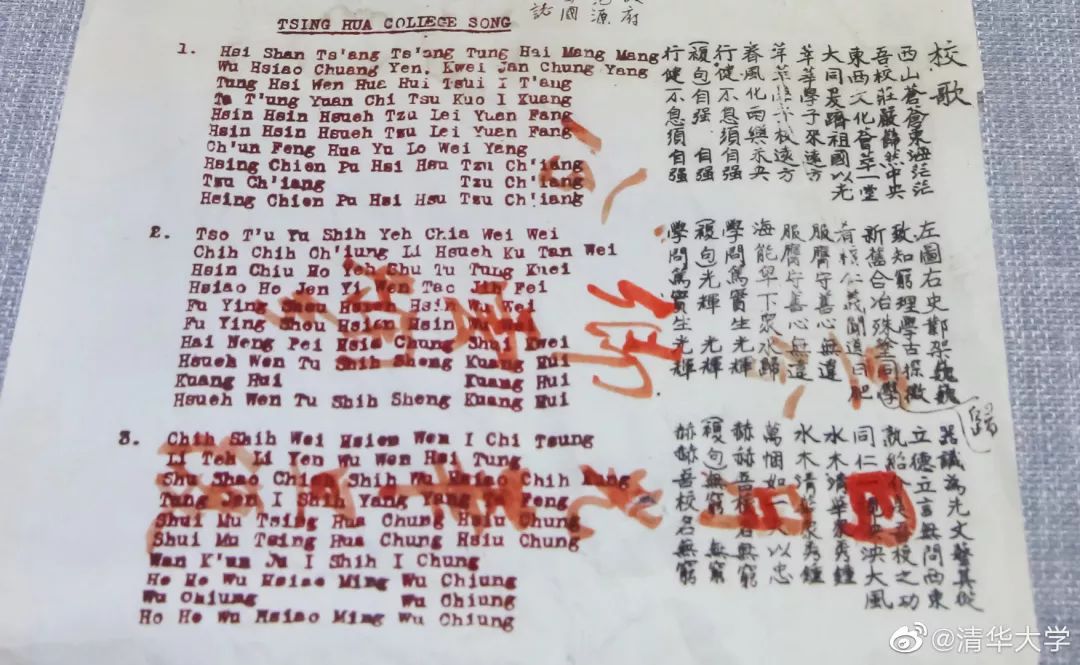 府
源
國
誌
TSING HUA COLLEGE SONG
1. Hsi Shan Ts'ang Ts'ang Tung Hai Mang Mang
Wu Hsiao Chuang Yen. Kwei Jan Chung Yang
Tung Hsi Wen Hua Hui Tsui I T'ang
Ta T'ung Yuan Chi Tsu Kuo I Kuang
Hsin Hsin Hsueh Tzu Lei Yuan Fang
Hsin Hsin Hsueh Tzu Lei Yuan Fang
Ch'un Feng Hua Yu Lo Wei Yang
Hsing Chien Pu Hsi Hsu Tzu Ch'iang
Tzu Ch'iang Tzu Ch'iang
Hsing Chien Pu Hsi Hsu Tzu Ch'iang
2. Tso T'u Yu Shih Yeh Chia Wei Wei
Chih Chih Ch'iung Li Hsueh Ku Tan Wei
Hsin Chiu Ho Yeh Shu Tu Tung Kuei
Hsiao Ho Jen Yi Wen Tao Jih Fei
Fu Ying Shou Hsien Hsin Wu Wei
Fu Ying Shou Hsian Hsin Wu Wei
Hai Neng Pei Hsia Chung Shui Kwei
Hsueh Wen Tu Shih Sheng Kuang Hui
Kuang Hui Kuang Hui
Hsueh Wen Tu Shih Sheng Kuang Hui
3. Chih Shih Wei Hsien Wen I Chi Tsung
Li Teh Li Yen Wu Wen Hsi Tung
Shu Shao Chieh Shih Wu Hsiao Chih Kung
Tung Jen I Shih Yang Yang Ta Feng
Shui Mu Tsing Hua Chung Hsiu Chung
Shui Mu Tsing Hua Chung Hsiu Chung
Wan K'un Ju I Shih I Chung
Ho Ho Wu Hsiao Ming Wu Chiung
Wu Chiung Wu Chiung
Ho Ho Wu Hsiao Ming Wu Chiung
校歌
西山蒼蒼東海茫茫
吾校莊嚴巋然中央
東西文化薈萃一堂
大同爰躋祖國以光
莘莘學子來遠方
莘莘學子來遠方
春風化雨樂未央
行健不息須自强
(複句自强 自强
行健不息須自强
左圖右史鄴架巍巍
致知窮理學古探微
新舊合冶殊途同學
歸
肴核仁義聞道日肥
服膺守善心無違
服膺守善心無違
海能卑下衆水歸
學問篤實生光輝
(複句光輝 光輝
學問篤實生光輝
器識為先文藝其從
立德立言無問西東
孰紹介吾校之功
同仁一視泱泱大風
水木清華衆秀鍾
水木清華衆秀鍾
萬悃如一矢以忠
赫赫吾校名無窮
(複句無窮 無窮
赫赫吾校名無窮
@清华大学